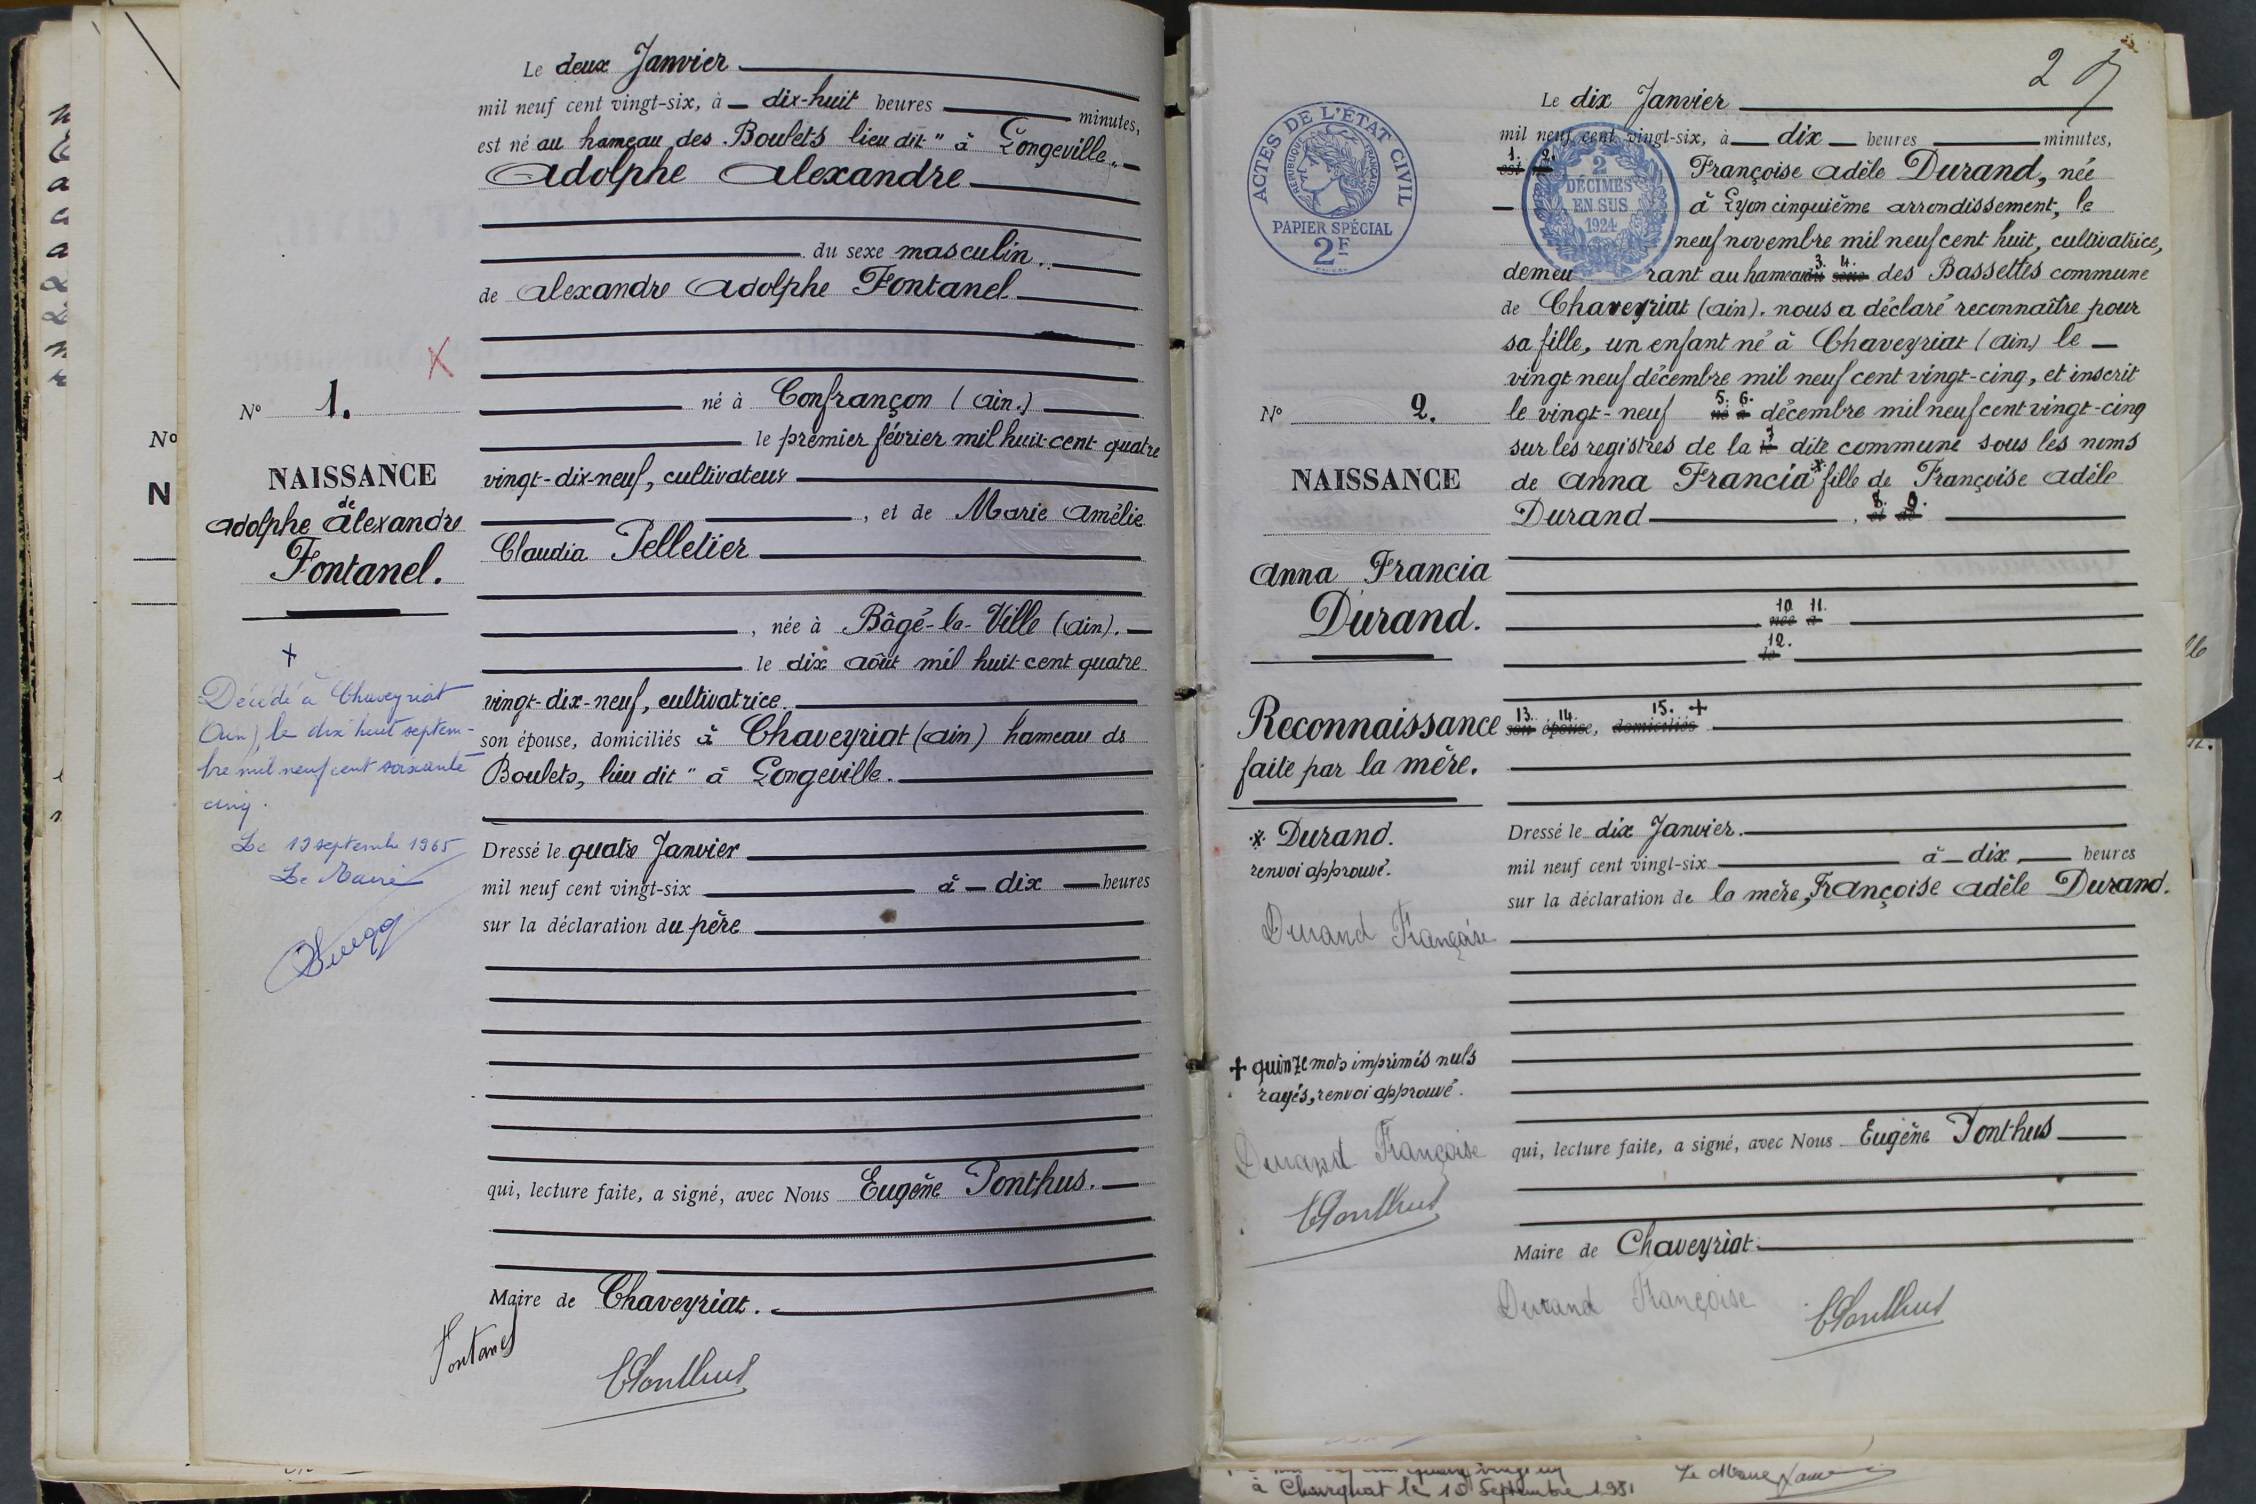 Le deux Janvier
mil neuf cent vingt-six, à dix-huit heures minutes,
est né au hameau des Boulets lieu dit " à Longeville "
Adolphe Alexandre
du sexe masculin.
de Alexandre Adolphe Fontanel
né à Confrançon (Ain.)
le premier février mil huit cent quatre
vingt-dix-neuf, cultivateur
, et de Marie Amélie
Claudia Pelletier
, née à Bâgé-la-Ville (Ain).
le dix août mil huit cent quatre
vingt-dix-neuf, cultivatrice.
son épouse, domiciliés à Chaveyriat (Ain) hameau ds
Boulets, lieu dit " à Longeville.
Dressé le quatre Janvier
mil neuf cent vingt-six à dix heures
sur la déclaration du père
qui, lecture faite, a signé, avec Nous Eugène Ponthus.
Maire de Chaveyriat.
Fontanel
EPonthus
N° 1.
NAISSANCE
de
Adolphe Alexandre
Fontanel.
+
Décédé à Chaveyriat
(Ain), le dix huit septem-
bre mil neuf cent soixante
cinq.
Le 19 septembre 1965
Le Maire
N°
N
2
Le dix Janvier
mil neuf cent vingt-six, à dix heures minutes,
1. 2.
est né Françoise Adèle Durand, née
à Lyon cinquième arrondissement, le
neuf novembre mil neuf cent huit, cultivatrice,
3. 4.
demeurant au hameau du sexe des Bassettes commune
de Chaveyriat (Ain). nous a déclaré reconnaître pour
sa fille, un enfant né à Chaveyriat (Ain.) le
vingt neuf décembre mil neuf cent vingt-cinq, et inscrit
5. 6.
le vingt-neuf né à décembre mil neuf cent vingt-cinq
7
sur les registres de la le dite commune sous les noms
de Anna Francia * fille de Françoise Adèle
8. 9.
Durand , et de
10 11.
née à
12.
le
13. 14. 15. +
son épouse, domiciliés
Dressé le dix Janvier.
mil neuf cent vingt-six à dix heures
sur la déclaration de la mère, Françoise Adèle Durand.
qui, lecture faite, a signé, avec Nous Eugène Ponthus
Maire de Chaveyriat
Durand Françoise EPonthus
ACTES DE L'ÉTAT CIVIL
RÉPUBLIQUE FRANÇAISE
PAPIER SPÉCIAL
2F
2
DÉCIMES
EN SUS
1924
N° 2.
NAISSANCE
Anna Francia
Durand.
Reconnaissance
faite par la mère.
* Durand.
renvoi approuvé.
Durand Françoise
+ quinze mots imprimés nuls
rayés, renvoi approuvé.
Durand Françoise
EPonthus
à Chaveyriat le 10 Septembre 1981
Le Maire